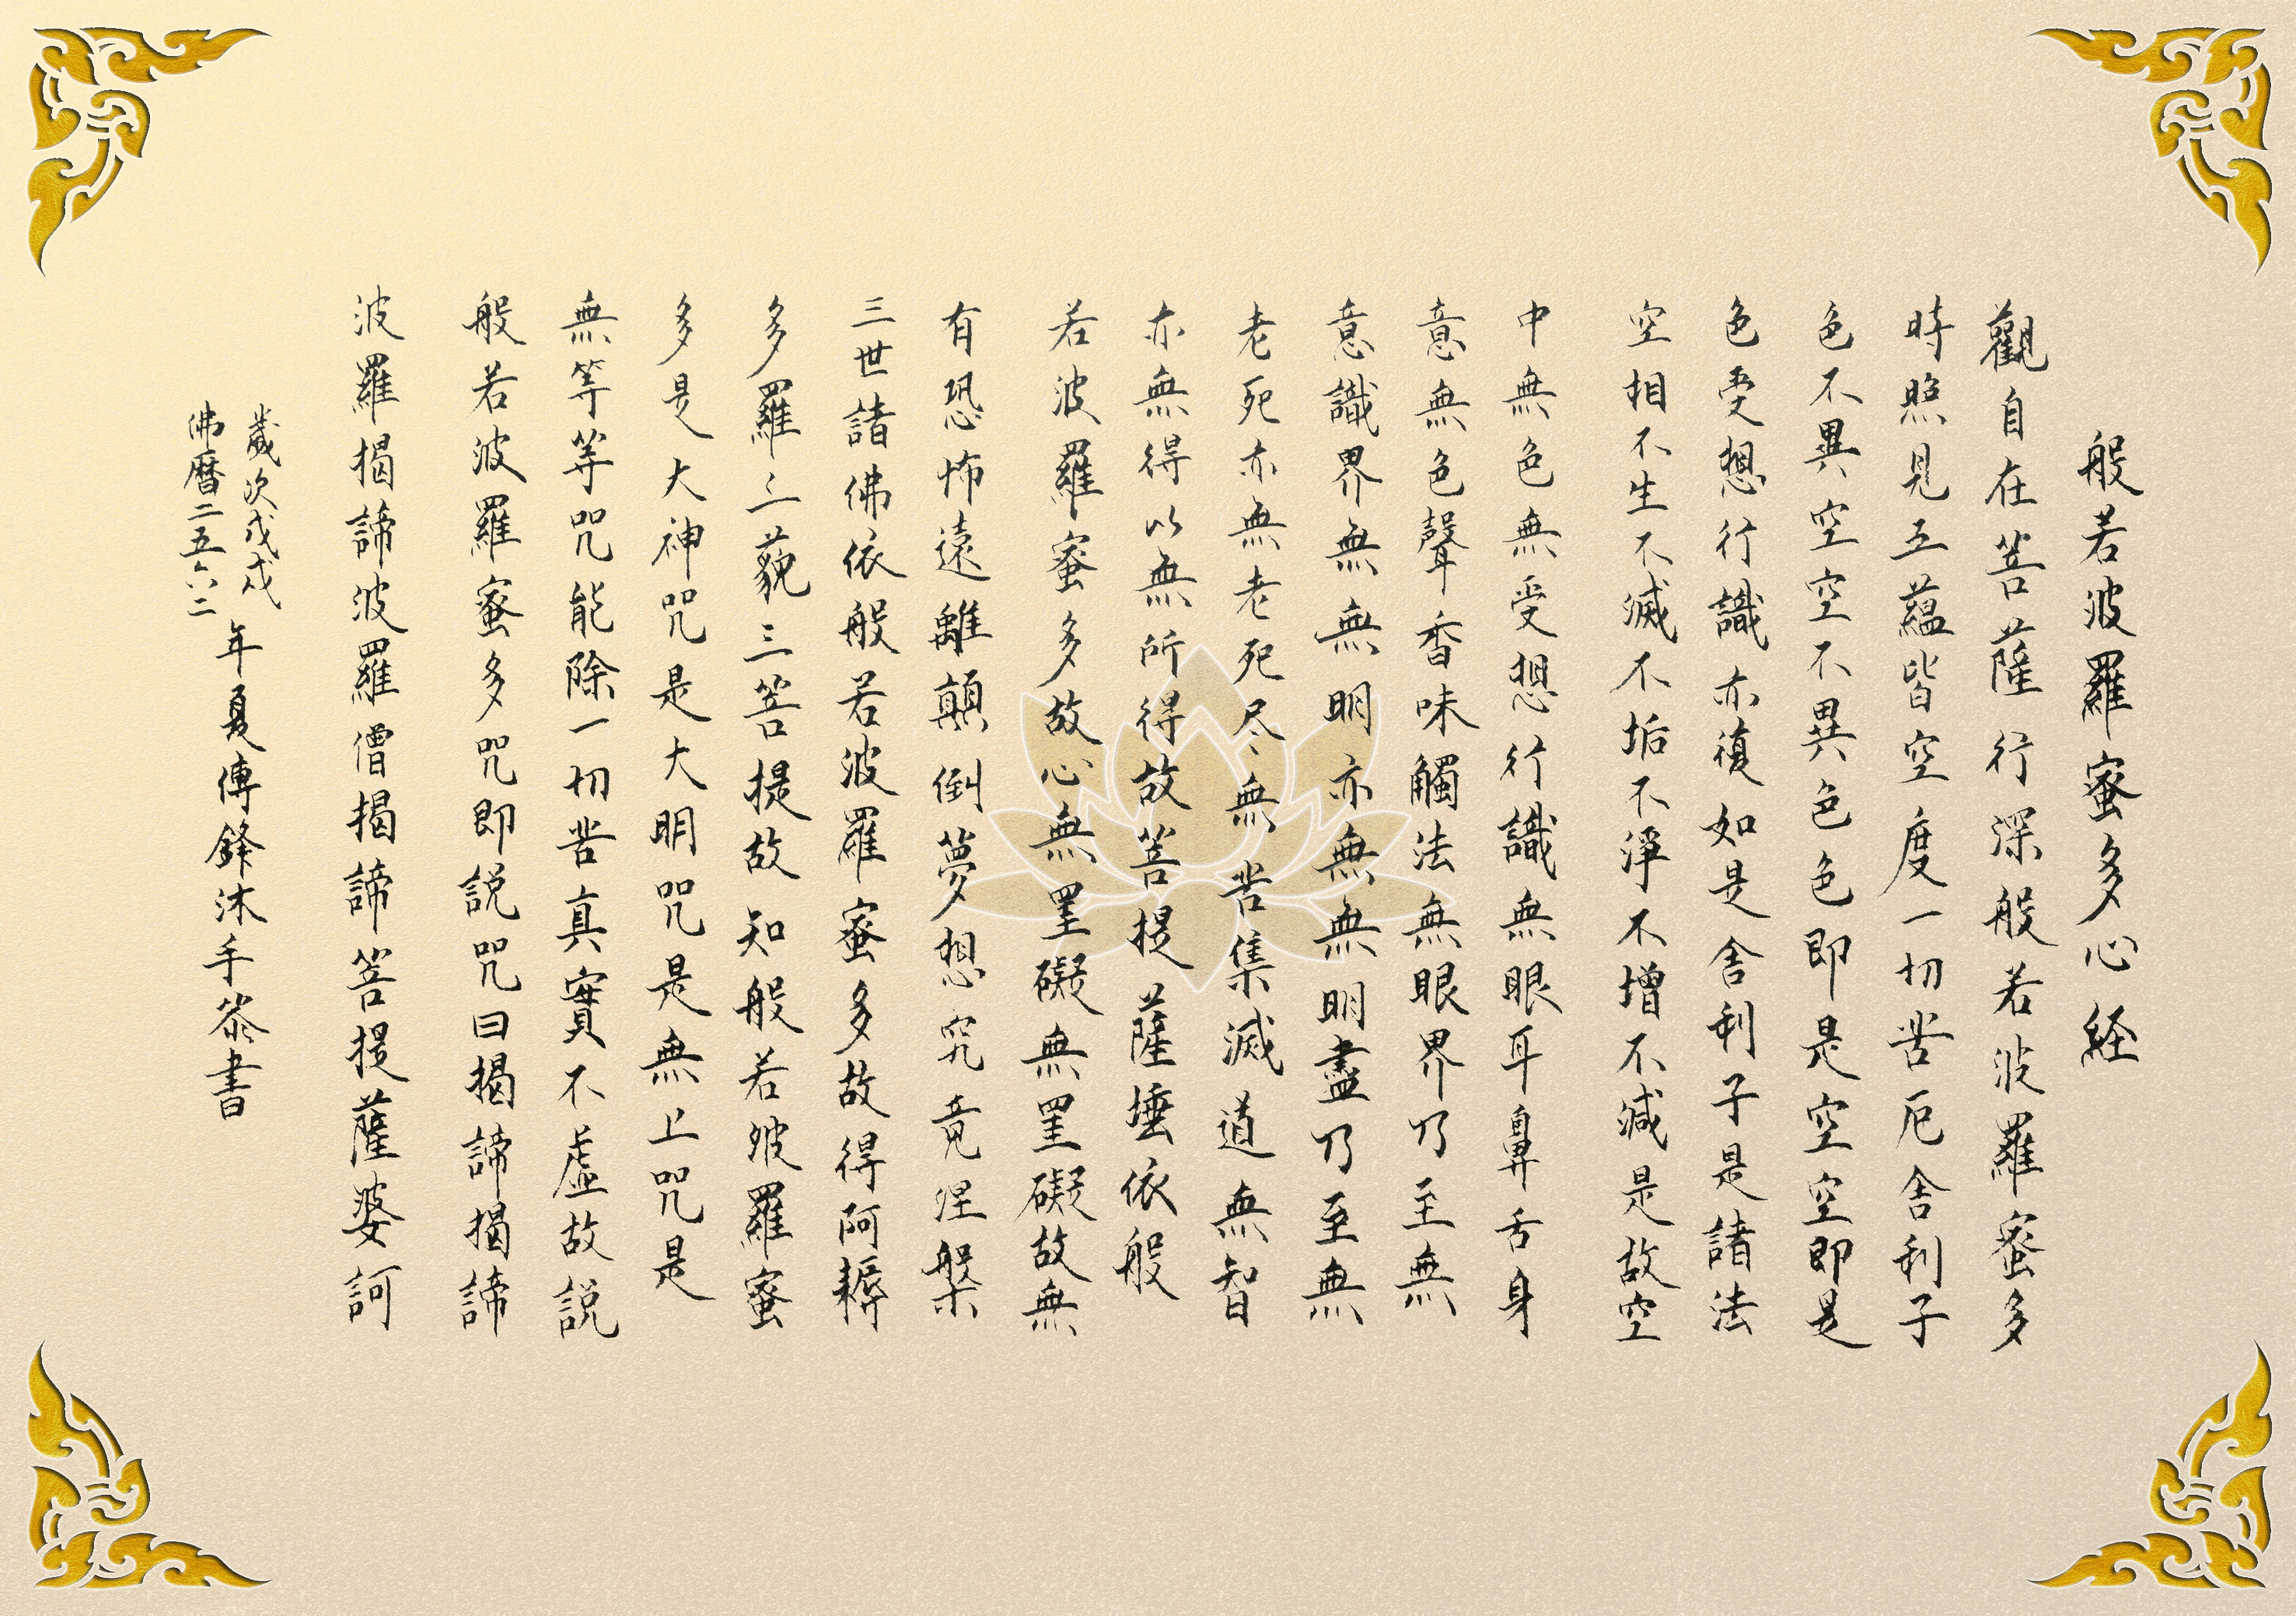 般若波羅蜜多心経
觀自在菩薩行深般若波羅蜜多
時照見五蘊皆空度一切苦厄舍利子
色不異空空不異色色即是空空即是
色受想行識亦復如是舍利子是諸法
空相不生不滅不垢不淨不增不減是故空
中無色無受想行識無眼耳鼻舌身
意無色聲香味觸法無眼界乃至無
意識界無無明亦無無明盡乃至無
老死亦無老死尽無苦集滅道無智
亦無得以無所得故菩提薩埵依般
若波羅蜜多故心無罣礙無罣礙故無
有恐怖遠離顛倒夢想究竟涅槃
三世諸佛依般若波羅蜜多故得阿耨
多羅三藐三菩提故知般若波羅蜜
多是大神咒是大明咒是無上咒是
無等等咒能除一切苦真實不虛故説
般若波羅蜜多咒即説咒曰揭諦揭諦
波羅揭諦波羅僧揭諦菩提薩婆訶
歲次戊戌
佛曆二五六二
年夏傅鋒沐手恭書